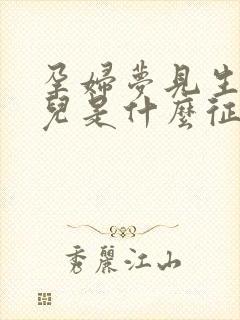 孕婦夢見生
兒是什麼征
秀麗江山